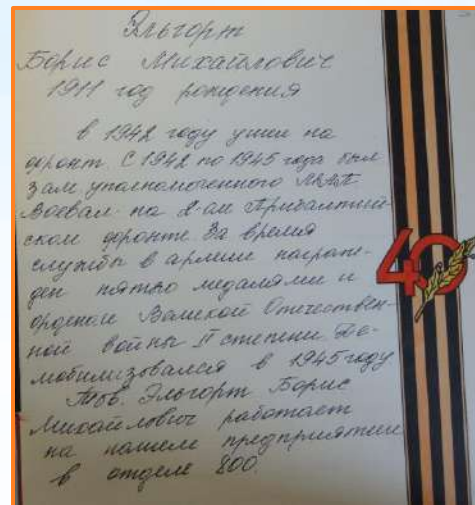 Эльгорт
Борис Михайлович
1911 год рождения
в 1942 году ушел на
фронт. С 1942 по 1945 года был
зам уполномоченного
Воевал на 2-ом Прибалтий-
ском фронте. За время
службы в армии награж-
ден пятью медалями и
орденом Великой Отечествен-
ной войны II степени. Де-
мобилизовался в 1945 году
Тов. Эльгорт Борис
Михайлович работает
на нашем предприятии
в отделе 800.
40